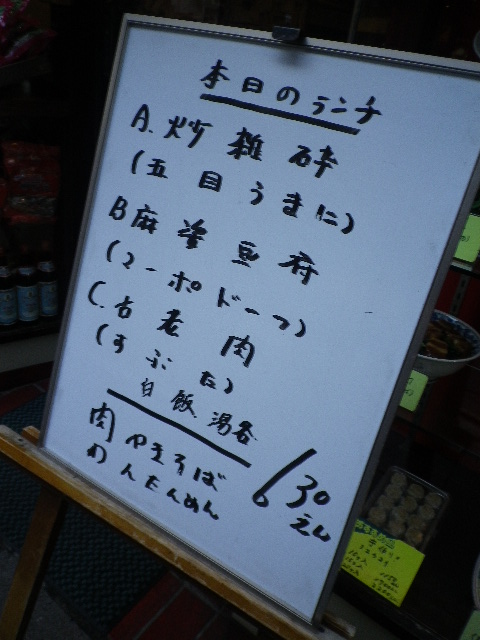 本日のランチ
A.炒雑砕
(五目うまに)
B麻婆豆府
(マーポドーフ)
C.古老肉
(すぶた)
白飯湯各
肉やきそば
わんたんめん
630えん